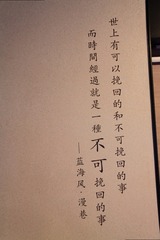 世上有可以挽回的和不可挽回的事
而時間經過就是一種不可挽回的事
——蓝海风·漫巷